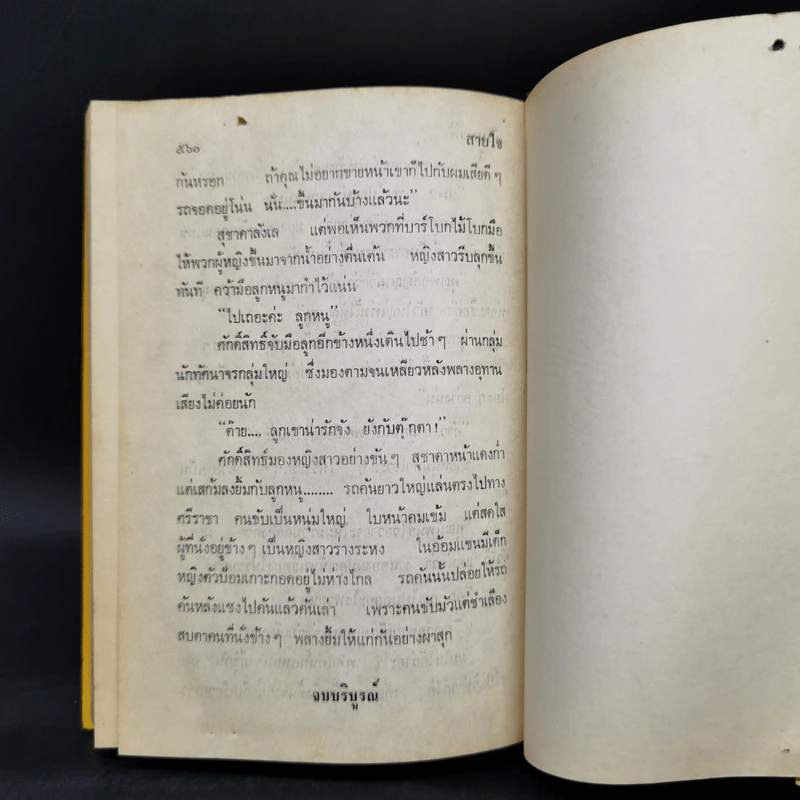 ๕๖๐ สายใจ
กันหรอก ถ้าคุณไม่อยากขายหน้าเขาก็ไปกับผมเสียดี ๆ
รถจอดอยู่โน่น นั่น....ขึ้นมากันบ้างแล้วนะ”
สุชาดาลังเล แต่พอเห็นพวกที่บาร์โบกไม้โบกมือ
ให้พวกผู้หญิงขึ้นมาจากน้ำอย่างตื่นเต้น หญิงสาวรีบลุกขึ้น
ทันที คว้ามือลูกหนูมากำไว้แน่น
“ไปเถอะค่ะ ลูกหนู”
ศักดิ์สิทธิ์จับมือลูกอีกข้างหนึ่งเดินไปช้า ๆ ผ่านกลุ่ม
นักทัศนาจรกลุ่มใหญ่ ซึ่งมองตามจนเหลียวหลังพลางอุทาน
เสียงไม่ค่อยนัก
“ต๊าย.... ลูกเขาน่ารักจัง ยังกับตุ๊กตา!”
ศักดิ์สิทธิ์มองหญิงสาวอย่างขัน ๆ สุชาดาหน้าแดงก่ำ
แต่เสก้มลงยิ้มกับลูกหนู........ รถคันยาวใหญ่แล่นตรงไปทาง
ศรีราชา คนขับเป็นหนุ่มใหญ่ ใบหน้าคมเข้ม แต่สดใส
ผู้ที่นั่งอยู่ข้าง ๆ เป็นหญิงสาวร่างระหง ในอ้อมแขนมีเด็ก
หญิงตัวป้อมเกาะกอดอยู่ไม่ห่างไกล รถคันนั้นปล่อยให้รถ
คันหลังแซงไปคันแล้วคันเล่า เพราะคนขับมัวแต่ชำเลือง
สบตาคนที่นั่งข้าง ๆ พลางยิ้มให้แก่กันอย่างผาสุก
จบบริบูรณ์